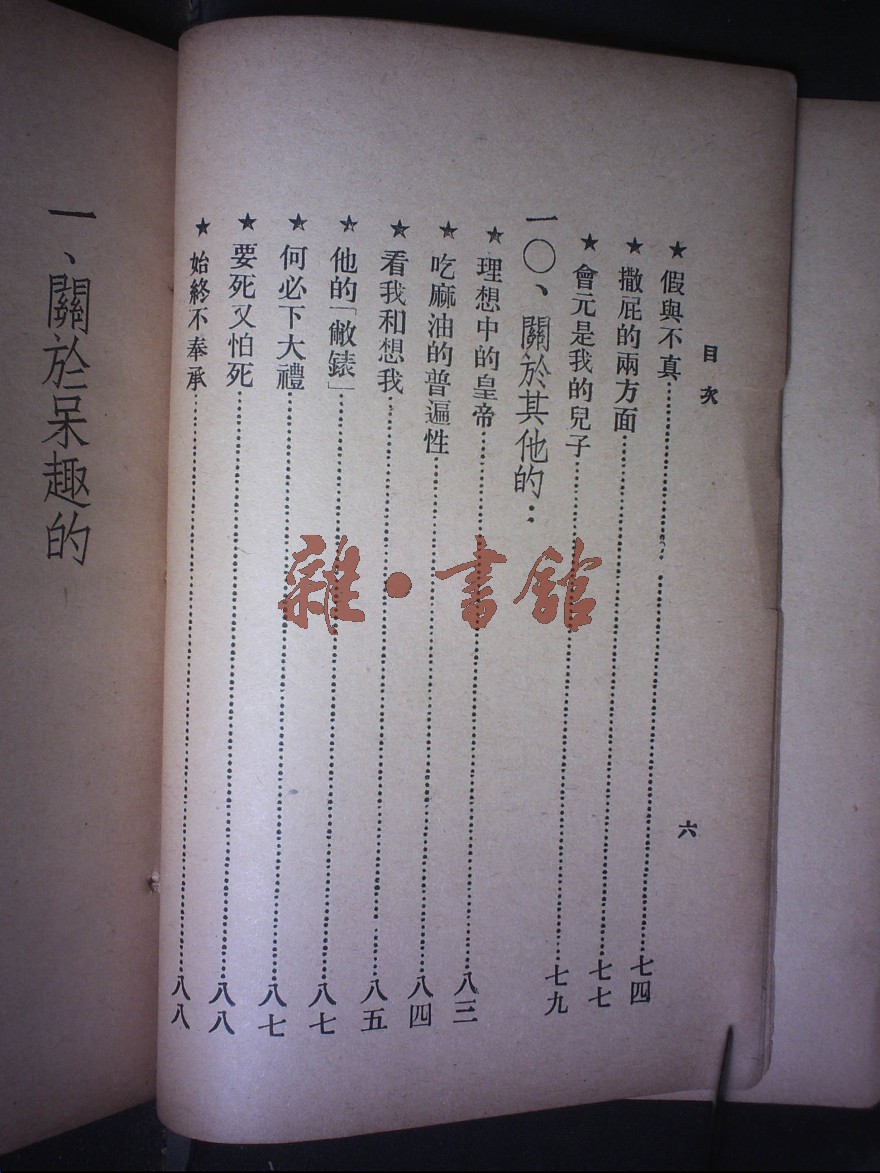 目次
六
★假與不真……七四
★撒屁的兩方面……七七
★會元是我的兒子……七九
一〇、關於其他的：
★理想中的皇帝……八三
★吃麻油的普遍性……八四
★看我和想我……八五
★他的「敝錶」……八七
★何必下大禮……八七
★要死又怕死……八八
★始終不奉承……八八
一、關於呆趣的
雜·書館